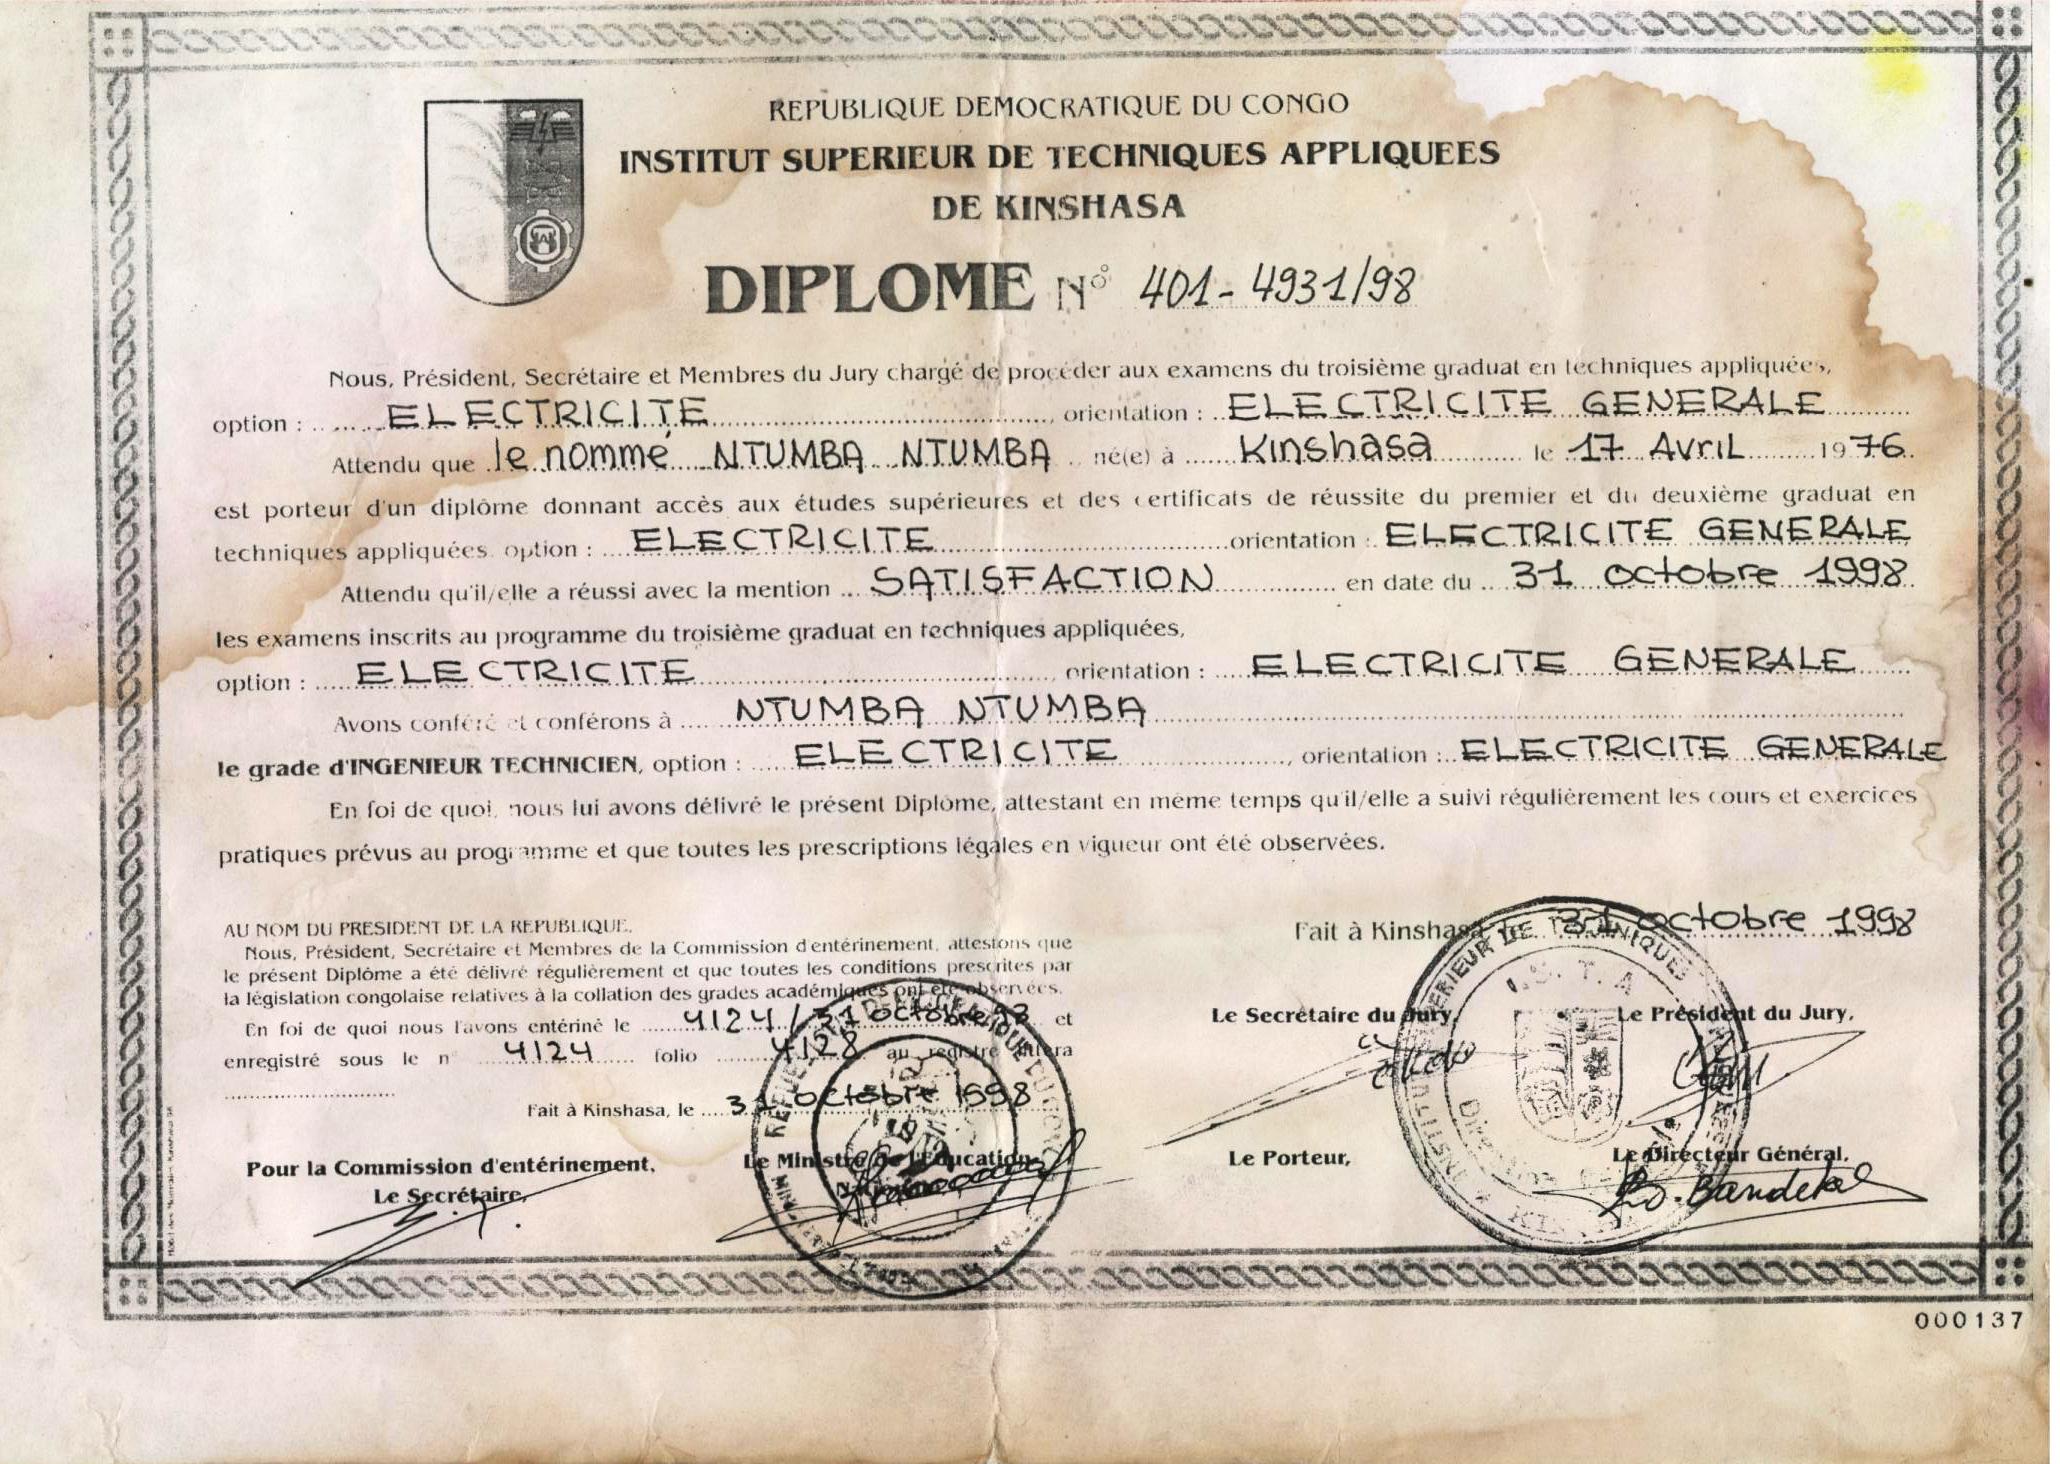 REPUBLIQUE DEMOCRATIQUE DU CONGO
INSTITUT SUPERIEUR DE TECHNIQUES APPLIQUEES
DE KINSHASA
DIPLOME N° 401-4931/98
Nous, Président, Secrétaire et Membres du Jury chargé de procéder aux examens du troisième graduat en techniques appliquées,
option : ELECTRICITE, orientation : ELECTRICITE GENERALE
Attendu que le nommé NTUMBA NTUMBA né(e) à Kinshasa le 17 Avril 1976
est porteur d'un diplôme donnant accès aux études supérieures et des certificats de réussite du premier et du deuxième graduat en
techniques appliquées. option : ELECTRICITE orientation : ELECTRICITE GENERALE
Attendu qu'il/elle a réussi avec la mention SATISFACTION en date du 31 octobre 1998
les examens inscrits au programme du troisième graduat en techniques appliquées,
option : ELECTRICITE, orientation : ELECTRICITE GENERALE
Avons conféré et conférons à NTUMBA NTUMBA
le grade d'INGENIEUR TECHNICIEN, option : ELECTRICITE, orientation : ELECTRICITE GENERALE
En foi de quoi, nous lui avons délivré le présent Diplôme, attestant en même temps qu'il/elle a suivi régulièrement les cours et exercices
pratiques prévus au programme et que toutes les prescriptions légales en vigueur ont été observées.
AU NOM DU PRESIDENT DE LA REPUBLIQUE,
Nous, Président, Secrétaire et Membres de la Commission d'entérinement, attestons que
le présent Diplôme a été délivré régulièrement et que toutes les conditions prescrites par
la législation congolaise relatives à la collation des grades académiques ont été observées.
En foi de quoi nous l'avons entériné le 4124/31 octobre 98 et
enregistré sous le n° 4124 folio 4128 au registre littera
Fait à Kinshasa, le 31 octobre 1998
Pour la Commission d'entérinement,
Le Secrétaire,
Le Ministre de l'Education
Fait à Kinshasa, le 31 octobre 1998
Le Secrétaire du Jury,
Le Président du Jury,
Le Porteur,
Le Directeur Général,
I.S.T.A
000137